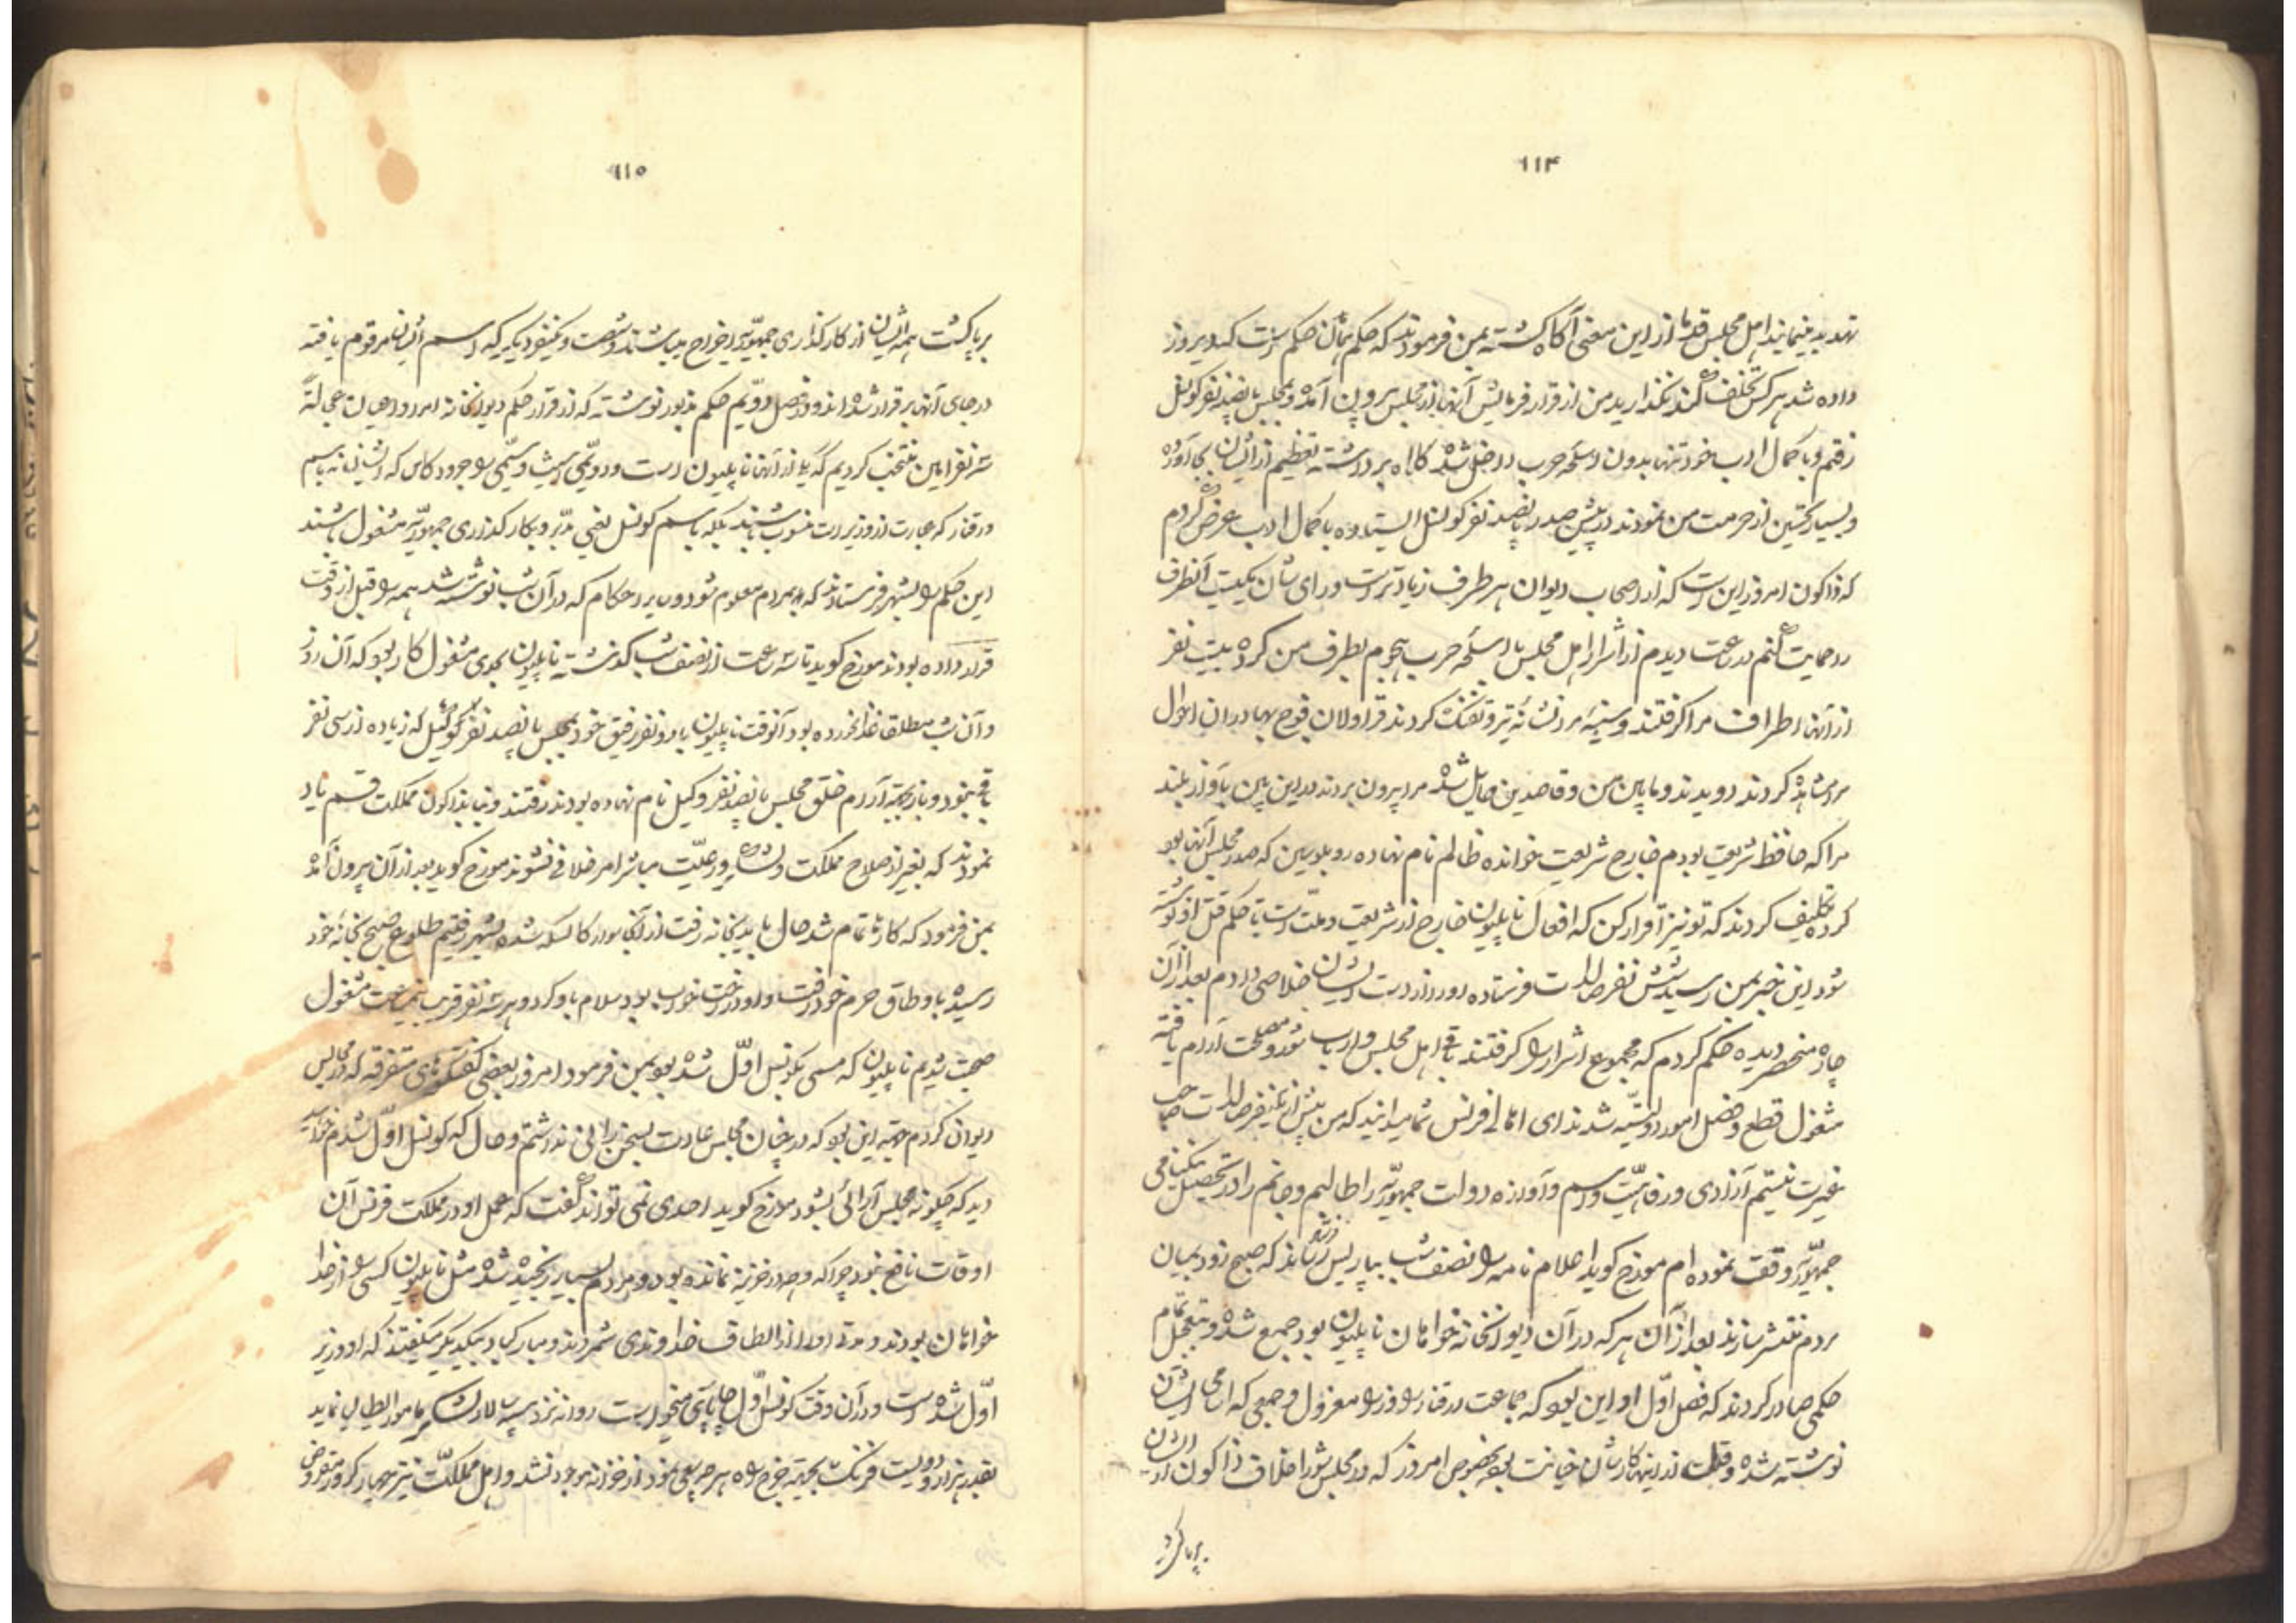 ۱۱۴
تهدید مینمایند اهل مجلس قدما از این معنی آگاه گشته بمن فرمودند که حکم همان حکم است که دیروز
داده شد هر کس تخلف کند نگذارید من از قرار فرمایش آنها از مجلس بیرون آمده و بمجلس پانصد نفر کونسل
رفتم و با کمال ادب خود تنها بدون اسلحه حرب داخل شده کلاه برداشته تعظیم از ایشان بجا آورده
و بسیار تحسین از حرمت من نمودند در پیش صدر پانصد نفر کونسل ایستاده با کمال ادب عرض کردم
که ذاکون امروز این است که از اصحاب دیوان هر طرف زیادتر است و رای شان یکیست آنطرف
را حمایت کنم در ساعت دیدم از اشرار اهل مجلس با اسلحه حرب هجوم بطرف من کرده بیست نفر
از آنها اطراف مرا گرفتند و سینه مرا نشانه تیر و تفنگ کردند قراولان فوج بهادران احوال
مرا مشاهده کردند دویدند و مابین من و قاصدین حایل شده مرا بیرون بردند در این بین بآواز بلند
مرا که حافظ شریعت بودم خارج شریعت خوانده ظالم نام نهاده رو بلوسین که صدر مجلس آنها بود
کرده تکلیف کردند که تو نیز اقرار کن که افعال ناپلیون خارج از شریعت و ملت است تا حکم قتل او نوشته
شود این خبر بمن رسید شش نفر صالدات فرستاده او را از دست ایشان خلاصی دادم بعد از آن
چاره منحصر دیده حکم کردم که مجموع اشرار را گرفتند باقی اهل مجلس و ارباب شور و مصلحت آرام یافته
مشغول قطع و فصل امور دولتیه شدند ای اهالی فرنس شما میدانید که من پیش از یکنفر صالدات صاحب
غیرت نیستم آزادی و رفاهیت و اسم و آوازه دولت جمهوریه را طالبم و جانم را در تحصیل نیکنامی
جمهوریه وقف نموده ام مورخ گوید اعلام نامه را نصف شب بپاریس فرستادند که صبح زود بمیان
مردم منتشر سازند بعد از آن هر که در آن دیوانخانه خواهان ناپلیون بود جمیع شده و بتعجیل تمام
حکمی صادر کردند که فصل اول او این بود که جماعت درقتار را وزرا معزول و جمعی که اسامی ایشان
نوشته شده و قلت اینها کارشان خیانت بود بخصوص امروز که در مجلس شورا خلاف ذاکون از ایشان
برپا گردید
۱۱۵
برپا گشت همه ایشان از کارگذاری جمهوریه اخراج میباشند و شصت و یکنفر دیگر که اسم ایشان مرقوم یافته
در جای آنها برقرار شده اند و در فصل دویم حکم مذبور نوشته که از قرار حکم دیوانخانه امروز اعیان عجالتة
سه نفر امین منتخب کردیم که یکی از آنها ناپلیون است و دویمی سیث و سیمی روجر دوکاس که ایشان نه باسم
درقتار که عبارت از وزیر است منسوب باشند بلکه باسم کونسل یعنی مدبر و بکارگذاری جمهوریه مشغول باشند
این حکم را بشهر فرستادند که بمردم معلوم شود و سایر احکام که در آن شب نوشته شد همه را قبل از وقت
قرار داده بودند مورخ گوید تا سه ساعت از نصف شب گذشته ناپلیون بجدی مشغول کار بود که آن روز
و آن شب مطلقا غذا نخورده بود آنوقت ناپلیون با دو نفر رفیق خود بمجلس پانصد نفر کونسل که زیاده از سی نفر
باقی نبود و باز بجهة آرام خلق مجلس پانصد نفر وکیل نام نهاده بودند رفتند و بنا بذاکون مملکت قسم یاد
نمودند که بغیر از صلاح مملکت و لشکر و رعیت مباشر امر خلافی نشوند مورخ گوید بعد از آن بیرون آمده
بمن فرمود که کارها تمام شد حال باید بخانه رفت از آنجا سوار کالسکه شده بشهر رفتیم طلوع صبح بخانه خود
رسیده باوطاق حرم خود رفت و او در رخت خواب بود سلام باو کرد و هر سه نفر قریب نیمساعت مشغول
صحبت شدیم ناپلیون که مسمی بکونسل اول شده بود بمن فرمود امروز بعضی گفتگوهای متفرقه که در مجالس
دیوان کردم جهة این بود که در چنان مجلس عادت بسخن رانی نداشتم و حال که کونسل اول شدم خواهید
دید که چگونه مجلس آرائی بشود مورخ گوید احدی نمی تواند گفت که عمل او در مملکت فرنس آن
اوقات نافع نبود چرا که وجه در خزینه نمانده بود و مردم بسیار رنجیده شده مثل ناپلیون کسی را از خدا
خواهان بودند و مردم او را از الطاف خداوندی شمردند و مبارکباد بیکدیگر میگفتند که او وزیر
اول شده است و در آن وقت کونسل اول چاپاری میخواست روانه نزد سپه سالار لشکر
بقدر هزار و دویست فرنک بجهة خرج راه هر چه سعی نمود از خزانه موجود نشد و اهل مملکت نیز چهار کرور مقروض